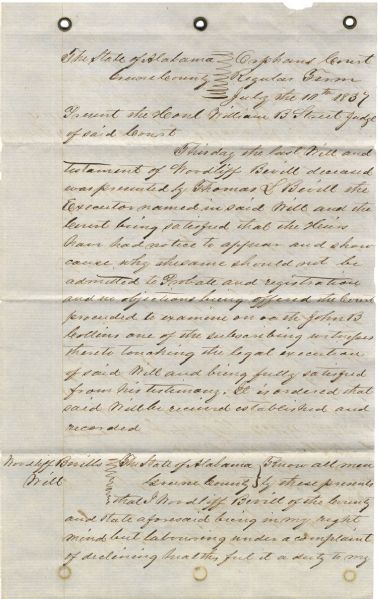 The State of Alabama Orphans Court
Greene County Regular Term
July the 10th 1837
Present the Honl William B Street Judge
of said Court
This day the last Will and
testament of Wordliff Bevill deceased
was presented by Thomas L Bevill the
Executor named in said Will and the
Court being satisfied that the Heirs
have had notice to appear and show
cause why the same should not be
admitted to Probate and registration
and no objections being offered the Court
proceeded to examine on oath John B
Collins one of the subscribing witnesses
thereto touching the legal execution
of said Will and being fully satisfied
from his testimony. It is ordered that
said Will be received established and
recorded
Wordliff Bevills The State of Alabama Know all men
Will Greene County by these presents
that I Wordliff Bevill of the County
and State aforesaid being in my right
mind but labouring under a complaint
of declining health feel it a duty to my